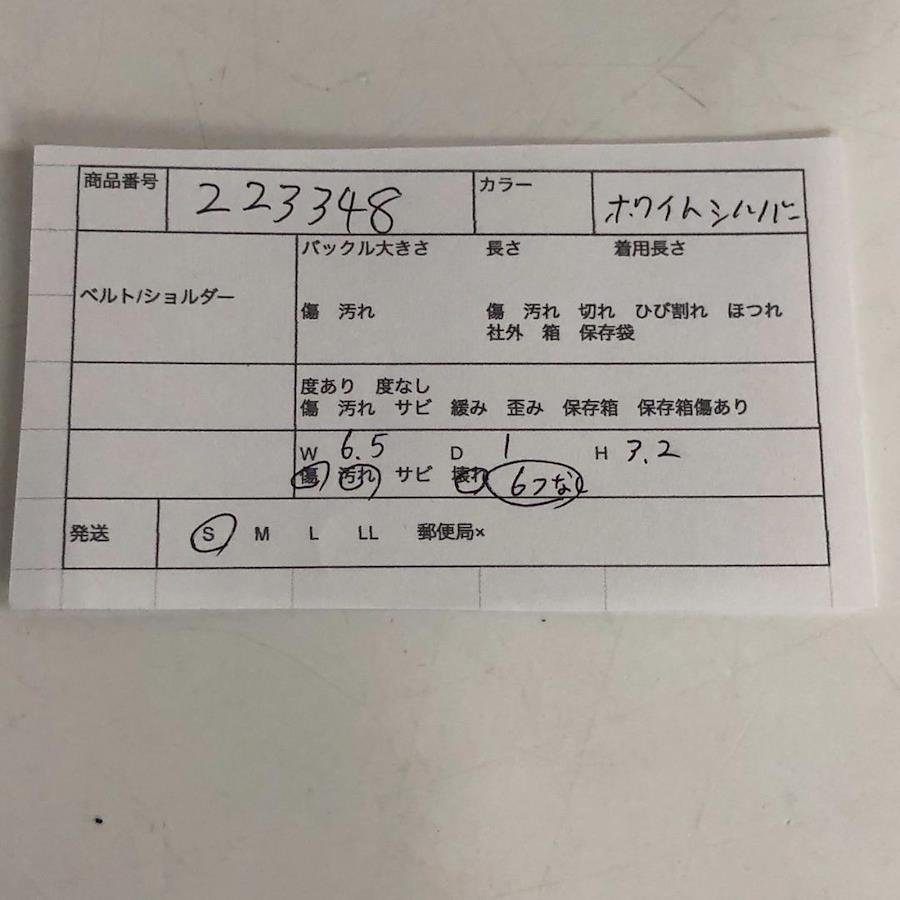 商品番号 223348 カラー ホワイトシルバー
バックル大きさ 長さ 着用長さ
ベルト/ショルダー
傷 汚れ 傷 汚れ 切れ ひび割れ ほつれ
社外 箱 保存袋
度あり 度なし
傷 汚れ サビ 緩み 歪み 保存箱 保存箱傷あり
W 6.5 D 1 H 3.2
傷 汚れ サビ 壊れ 6つなし
発送 S M L LL 郵便局×